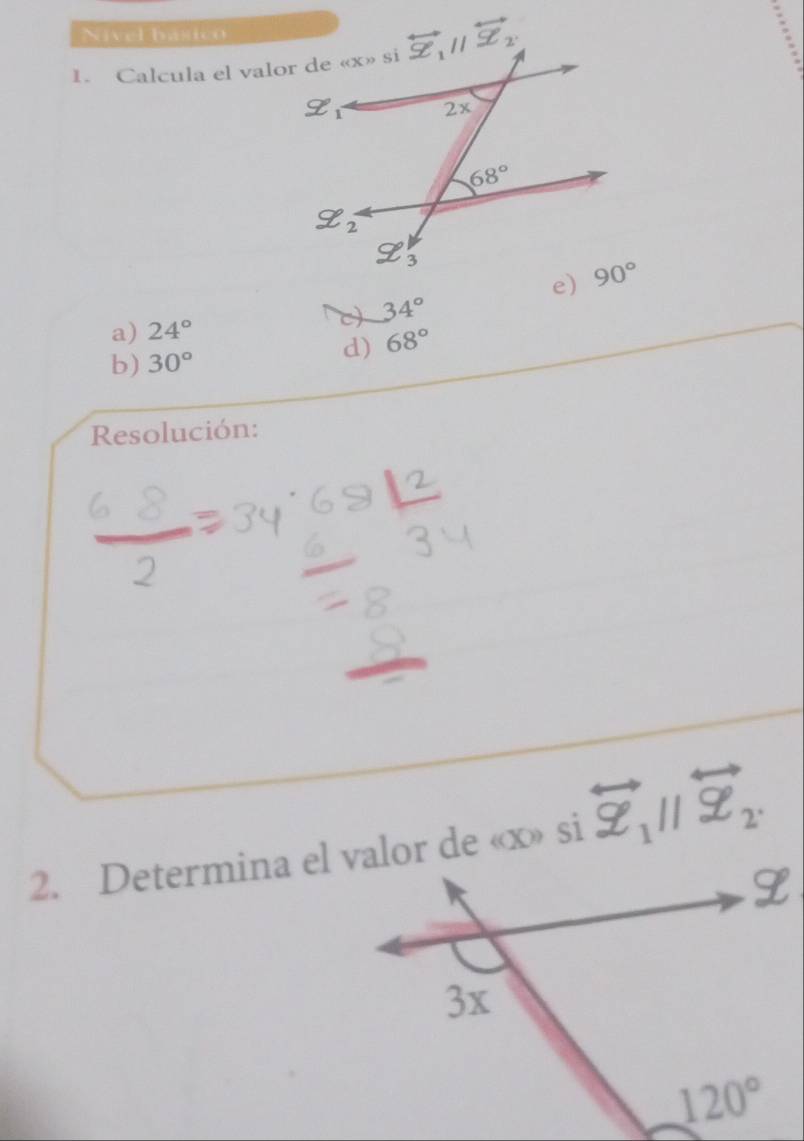 Nivel básico
1. Calcula el valor de «x» si ℒ₁ // ℒ₂.
ℒ₁
2x
68°
ℒ₂
ℒ₃
a) 24°
b) 30°
c) 34°
d) 68°
e) 90°
Resolución:
68/2 = 34
68 2
6 34
= 8
8
-
2. Determina el valor de «x» si ℒ₁ // ℒ₂.
ℒ
3x
120°